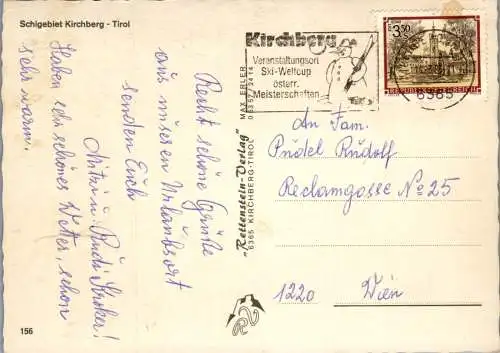 Schigebiet Kirchberg - Tirol
Recht schöne Grüße
aus unseren Urlaubsort
senden Euch
Mitzi u. Rudi
Haben sehr schönes Wetter, schon
sehr warm.
156
"Rettenstein-Verlag"
6365 KIRCHBERG-TIROL
MAX ERLER
Kirchberg
Veranstaltungsort
Ski-Weltcup
österr.
Meisterschaften
3.50
REPUBLIK ÖSTERREICH
6365
An Fam.
Pridel Rudolf
Reclamgasse No 25
1220 Wien